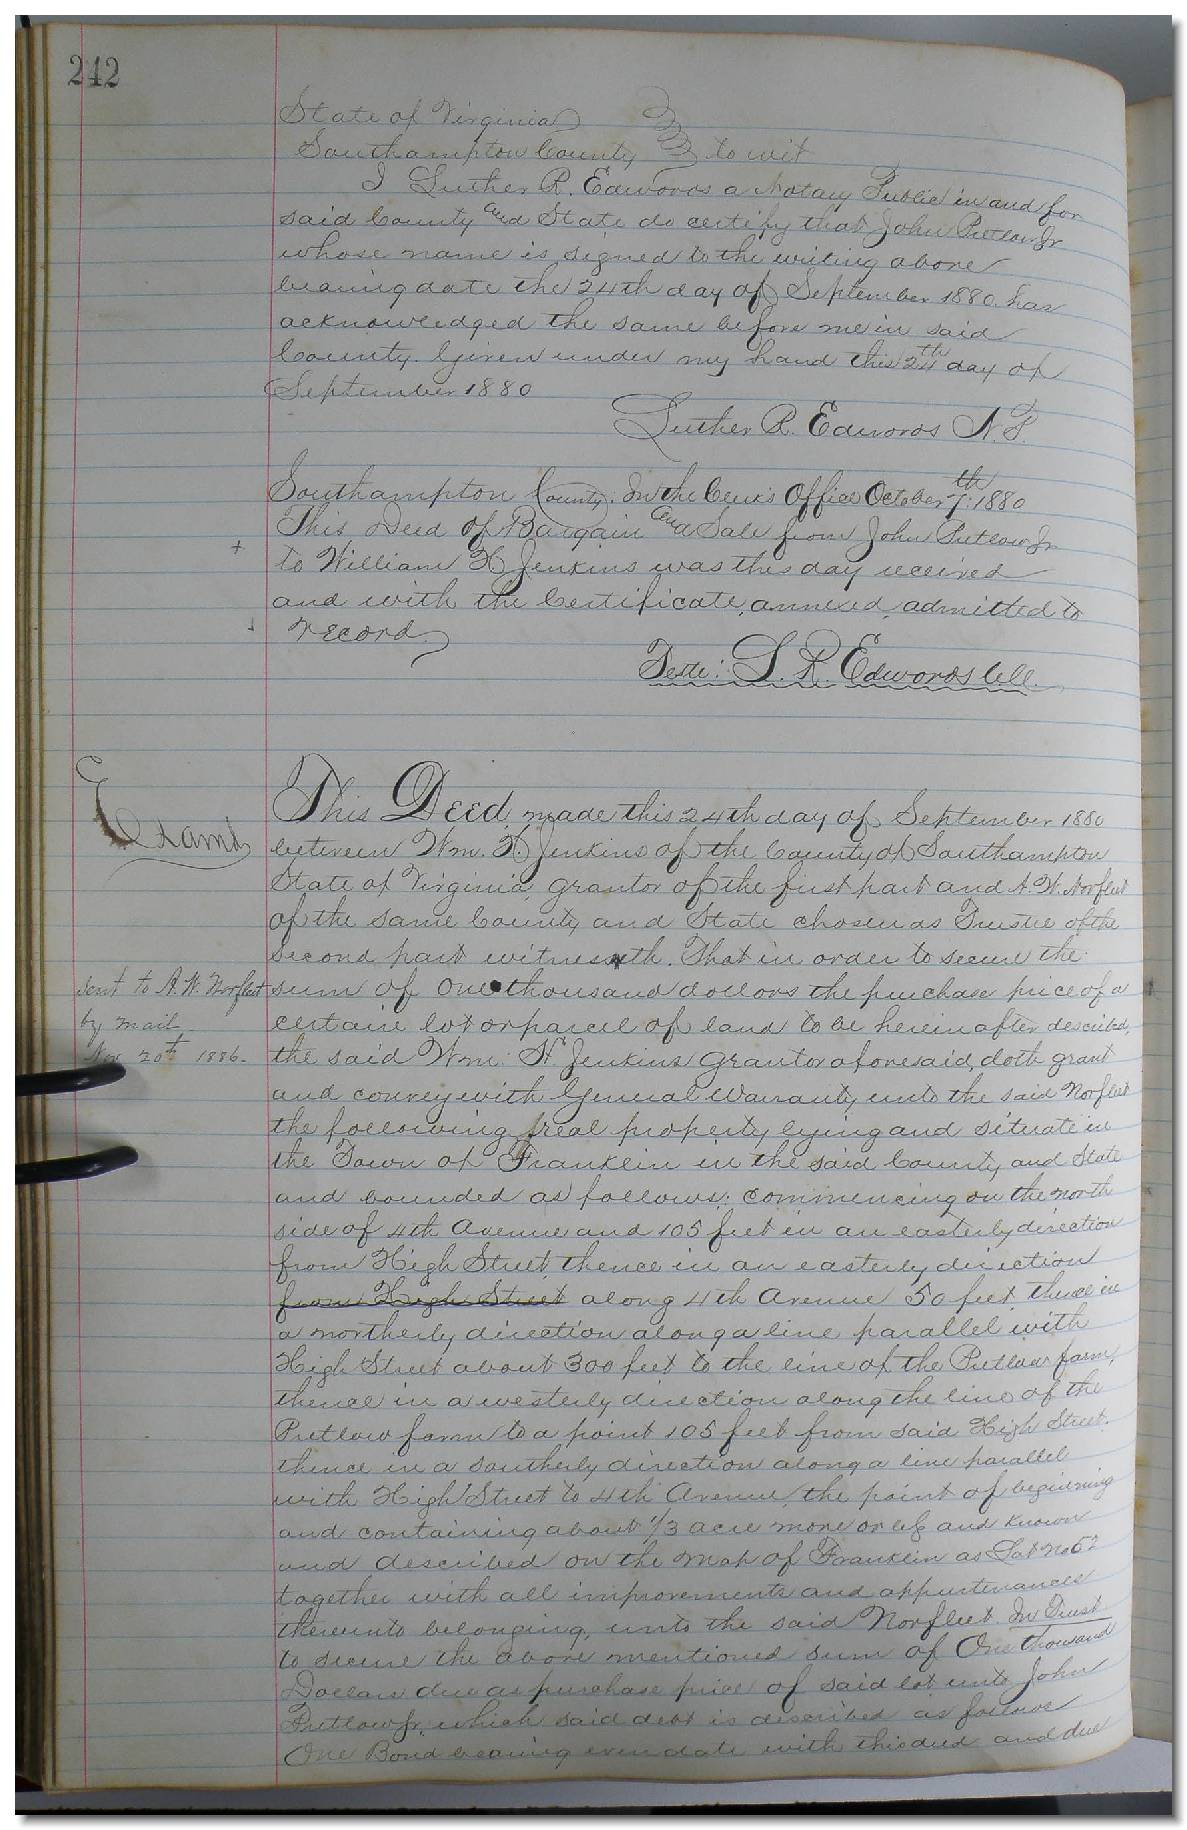 242
State of Virginia
Southampton County to wit
I Luther R. Edwards a Notary Public in and for
said County and State do certify that John Pretlow Jr
whose name is signed to the writing above
bearing date the 24th day of September 1880. has
acknowledged the same before me in said
County. Given under my hand this 24th day of
September 1880
Luther R. Edwards N.P.
Southampton County. In the Clerk's Office October 7th 1880
This Deed of Bargain and Sale from John Pretlow Jr
to William H Jenkins was this day received
and with the Certificate, annexed, admitted to
record
Teste: L. R. Edwards Clk.
Examd
This Deed, made this 24th day of September 1880
between Wm. H. Jenkins of the County of Southampton
State of Virginia, grantor of the first part and A. W. Norfleet
of the same County and State chosen as Trustee of the
second part witnesseth. That in order to secure the
sent to A. W. Norfleet
by mail
Nov 20th 1886.
sum of One thousand dollars the purchase price of a
certain lot or parcel of land to be hereinafter described,
the said Wm. H. Jenkins grantor aforesaid, doth grant
and convey with General Warranty unto the said Norfleet
the following real property lying and situate in
the Town of Franklin in the said County and State
and bounded as follows: commencing on the north
side of 4th Avenue and 105 feet in an easterly direction
from High Street, thence in an easterly direction
from High Street along 4th Avenue 50 feet, thence in
a northerly direction along a line parallel with
High Street about 300 feet to the line of the Pretlow farm,
thence in a westerly direction along the line of the
Pretlow farm to a point 105 feet from said High Street.
thence in a southerly direction along a line parallel
with High Street to 4th Avenue, the point of beginning
and containing about 1/3 acre more or less and known
and described on the map of Franklin as Lot No 52
together with all improvements and appurtenances
thereunto belonging, unto the said Norfleet. In Trust
to secure the above mentioned sum of One thousand
Dollars due as purchase price of said lot unto John
Pretlow Jr, which said debt is described as follows
One Bond bearing even date with this deed and due